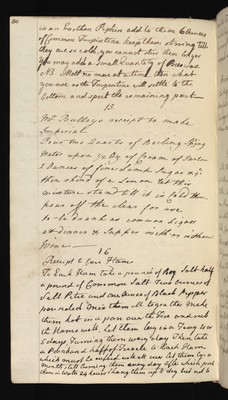 in an Earthen Pipkin add to them 6 Ounces
of Common Turpentine keep them stirring till
they are so cold, you cannot stir them longer
You may add a small Quantity of Bees Wax
NB. Melt no more at a time than what
you use or the Turpentine will settle to the
bottom and spoil the remaining part
15.
Mr Bulleys receipt to make
Imperial
Pour two Quarts of Boiling Spring
Water upon of Cream of Tartar
2 Ounces of fine Lump Sugar &
the rind of a Lemon let this
mixture stand till it is Cold then
pour off the clear for use
to be drank as common liquor
at dinner & Supper with or without
Wine
16
Receipt to Cure Hams
To Each Ham take a pound of Bay Salt half
a pound of Common Salt Two Ounces of
Salt Petre and one Ounce of Black Pepper
pounded mix them all together Make
them hot in a pan over the Fire and rub
the Hams well, let them lay in a Tray 4 or
5 days Turning them every day Then take
a Pound and half of Treacle to Each Ham
which must be rubbed well all over let them lay a
month still turning them every day after which put
them in Water 24 hours & hang them up to dry but not to